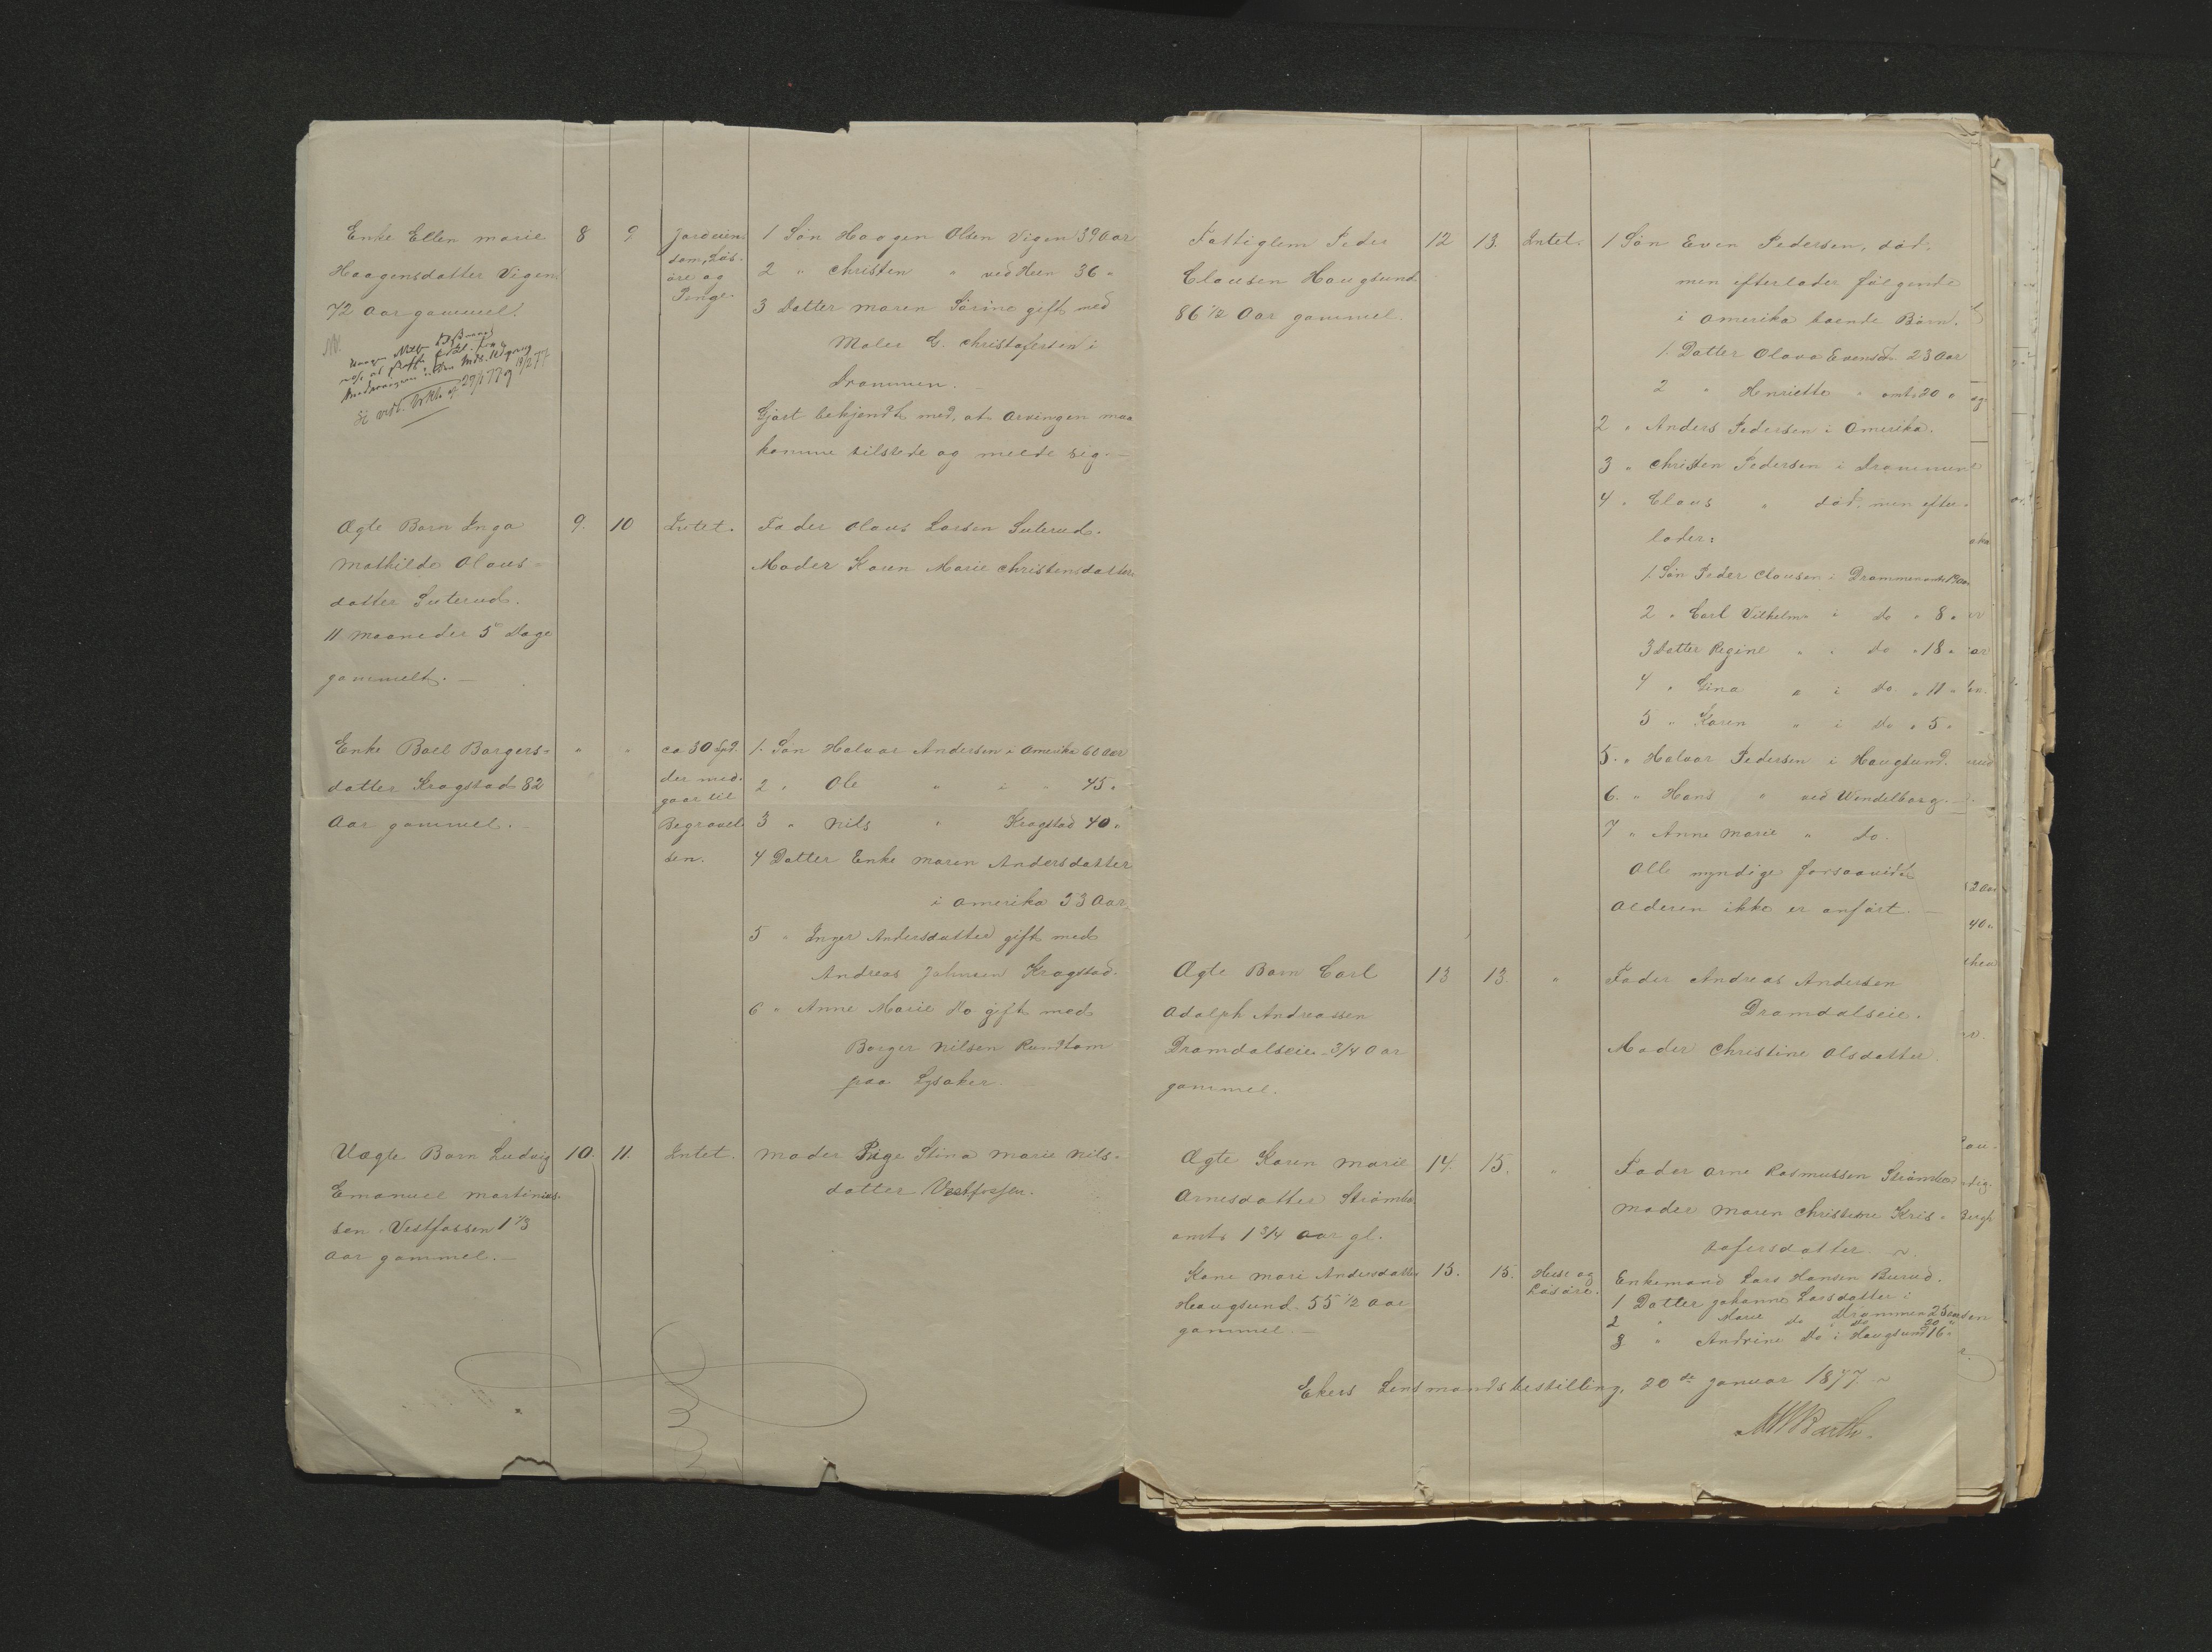 Enke Ellen Marie 8 9 Jordeien- 1 Søn Haagen Olsen Vigen 39 Aar
Haagensdatter Vigen dom, Løs- 2 " Christen " ved Heen 36 "
72 Aar gammel. øre og 3 Datter Maren Sørine gift med
Penge. Maler C. Christofersen i
Drammen. -
Gjort bekjendt med, at Arvingen maa
komme tilstede og melde seg. -
Ægte Barn Inga 9. 10 Intet. Fader Olaus Larsen Suterud.
Mathilde Olaus- Moder Karen Marie Christensdatter
datter Suterud.
11 Maaneder 5 Dage
gammelt. -
Enke Boel Borgers- " " ca 30 Spd. 1. Søn Halvor Andersen i Amerika 60 Aar
datter Kragstad 82 der med- 2 " Ole " i " 45 "
Aar gammel. - gaar til 3 " Nils " Kragstad 40 "
Begravel- 4 Datter Enke Maren Andersdatter
sen. i Amerika 53 Aar
5 " Inger Andersdatter gift med
Andreas Johnsen Kragstad.
6 " Anne Marie Do gift med
Borger Nilsen Rundtom
paa Lysaker.
Uægte Barn Ludvig 10. 11. Intet. Moder Pige Stina Marie Nils-
Emanuel Martinius- datter Vestfossen.
sen Vestfossen 1 1/3
Aar gammel. -
Fattiglem Peder 12 13. Intet. 1 Søn Even Pedersen, død,
Clausen Haugsund men efterlader følgende
86 1/2 Aar gammel. i Amerika boende Børn.
1. Datter Olava Evensd. 23 Aar
2 " Henriette " omt. 20 "
2 " Anders Pedersen i Amerika.
3 " Christen Pedersen i Drammen
4 " Claus " død, men efter-
lader:
1. Søn Peder Clausen i Drammen
2 " Carl Vilhelm " i Do " 8 "
3 Datter Regine " i Do " 18 "
4 " Gina " i Do " 11 "
5 " Karen " i Do " 5 "
5. " Halvor Pedersen i Haugsund.
6. " Hans " ved Vendelborg. -
7 " Anne Marie " Do.
Alle myndige forsaavidt
Alderen ikke er anført. -
Ægte Barn Carl 13 13. " Fader Andreas Andersen
Adolph Andreassen Dramdalseie.
Dramdalseie 3/4 Aar Moder Christine Olsdatter
gammel.
Ægte Karen Marie 14. 15. " Fader Arne Rasmussen Strømbo
Arnesdatter Strømbo Moder Maren Christine Kris-
omt. 1 3/4 Aar gl. tofersdatter ~
Kone Mari Andersdatter 15. 15. Huse og Enkemand Lars Hansen Burud.
Haugsund 55 1/2 Aar Løsøre. 1 Datter Johanne Larsdatter i
gammel. - Drammen 25 Aar
2 " Marie Do " Do 20 "
3 " Andrine Do i Haugsund 16 "
Ekers Lensmandsbestilling, 20de Januar 1877. ~
MWBarth.